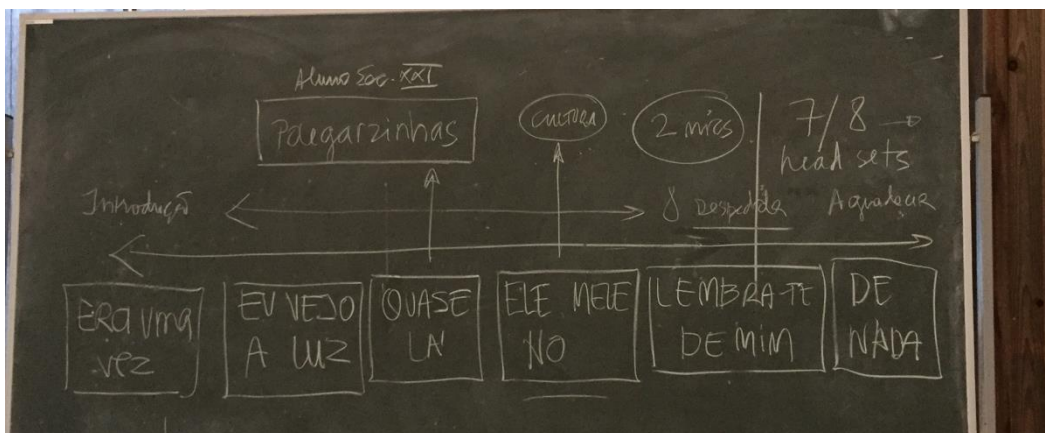 Aluno Séc. XXI
Polegarzinhas
CULTURA
2 mics
7/8 →
head sets
Introdução
8 Despedida
Agradecer
ERA UMA
VEZ
EU VEJO
A LUZ
QUASE
LÁ
ELE MELE
NO
LEMBRA-TE
DE MIM
DE
NADA